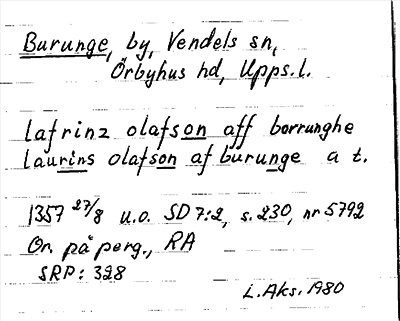 Burunge, by, Vendels sn,
Örbyhus hd, Upps.l.
lafrinz olafson aff borrunghe
laurins olafson af burunge a t.
1357 27/8 u.o. SD 7:2, s. 230, nr 5792
Or. på perg., RA
SRP: 328
L. Aks. 1980